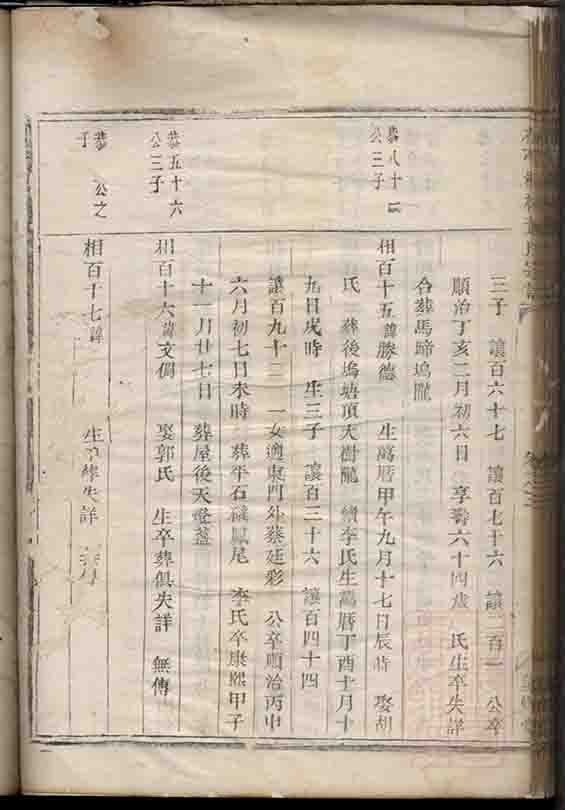 三子 讓百六十七 讓百七十六 讓二百一 公卒
順治丁亥二月初六日 享壽六十四歲 氏生卒失詳
合葬馬蹄塢隴
恭八十二
公三子
相百十五諱勝德 生萬曆甲午九月十七日辰時 娶胡
氏 葬後塢培頂大樹隴 續李氏生萬曆丁酉十月十
九日戌時 生三子 讓百三十六 讓百四十四
讓百九十二 一女適東門外蔡廷彩 公卒順治丙申
六月初七日未時 葬平石礁鳳尾 李氏卒康熙甲子
十一月廿七日 葬屋後天燈盞
恭五十六
公三子
相百十六諱文倜 娶郭氏 生卒葬俱失詳 無傳
恭 公之
子
相百十七諱 生卒葬失詳